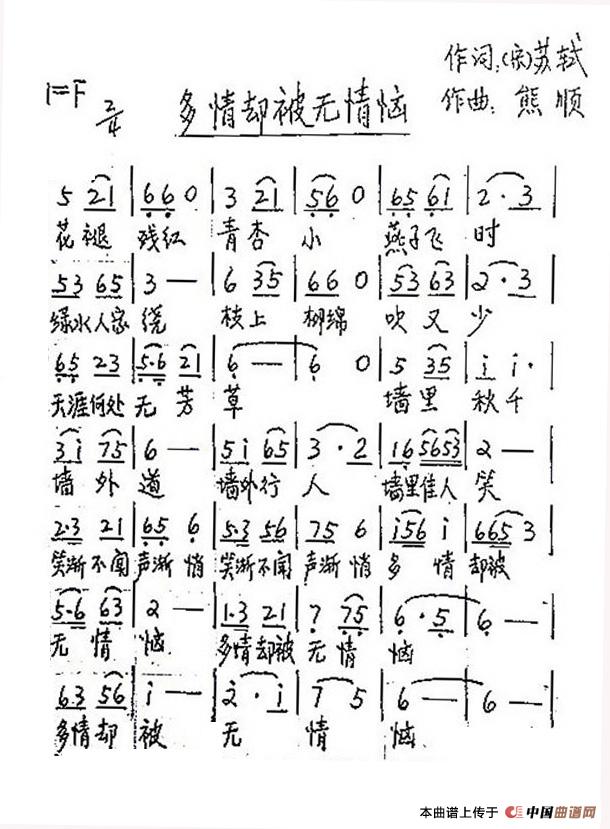 作词:(宋)苏轼
1=F 2/4 多情却被无情恼 作曲:熊顺
5 21 | 66 0 | 3 21 | 56 0 | 65 61 | 2·3 |
花褪 残红 青杏 小 燕子飞 时
53 65 | 3 — | 6 35 | 66 0 | 53 63 | 2·3 |
绿水人家 绕 枝上 柳绵 吹又 少
65 23 | 5·6 21 | 6 — | 6 0 | 5 35 | i i· |
天涯何处 无芳 草 墙里 秋千
3i 75 | 6 — | 5i 65 | 3·2 | 16 5653 | 2 — |
墙外 道 墙外行 人 墙里佳人 笑
2·3 21 | 65 6 | 5·3 56 | 75 6 | i56 i | 665 3 |
笑渐不闻 声渐悄 笑渐不闻 声渐悄 多情 却被
5·6 63 | 2 — | 1·3 21 | 7 75 | 6·5 | 6 — |
无情 恼 多情却被 无情 恼
63 56 | i — | 2·i | 7 5 | 6 — | 6 — |
多情却 被 无 情 恼
本曲谱上传于 中国曲谱网